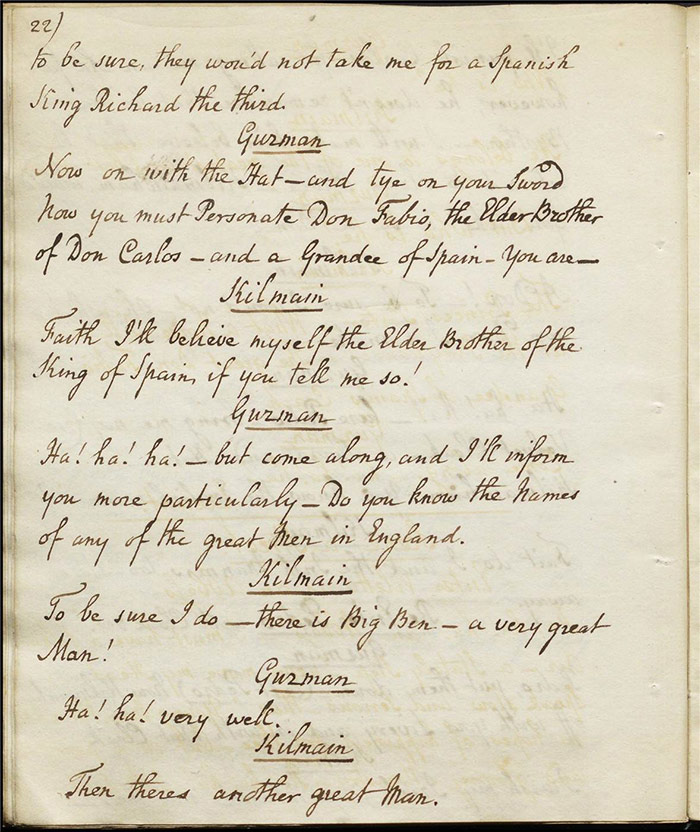 22)
to be sure, they wou'd not take me for a Spanish
King Richard the third.
Guzman
Now on with the Hat – and tye on your Sword
Now you must Personate Don Fabio, the Elder Brother
of Don Carlos – and a Grandee of Spain – You are –
Kilmain
Faith I'll believe myself the Elder Brother of the
King of Spain, if you tell me so!
Guzman
Ha! ha! ha! – but come along, and I'll inform
you more particularly – Do you know the Names
of any of the great Men in England.
Kilmain
To be sure I do – there is Big Ben – a very great
Man!
Guzman
Ha! ha! very well.
Kilmain
Then theres another great Man.